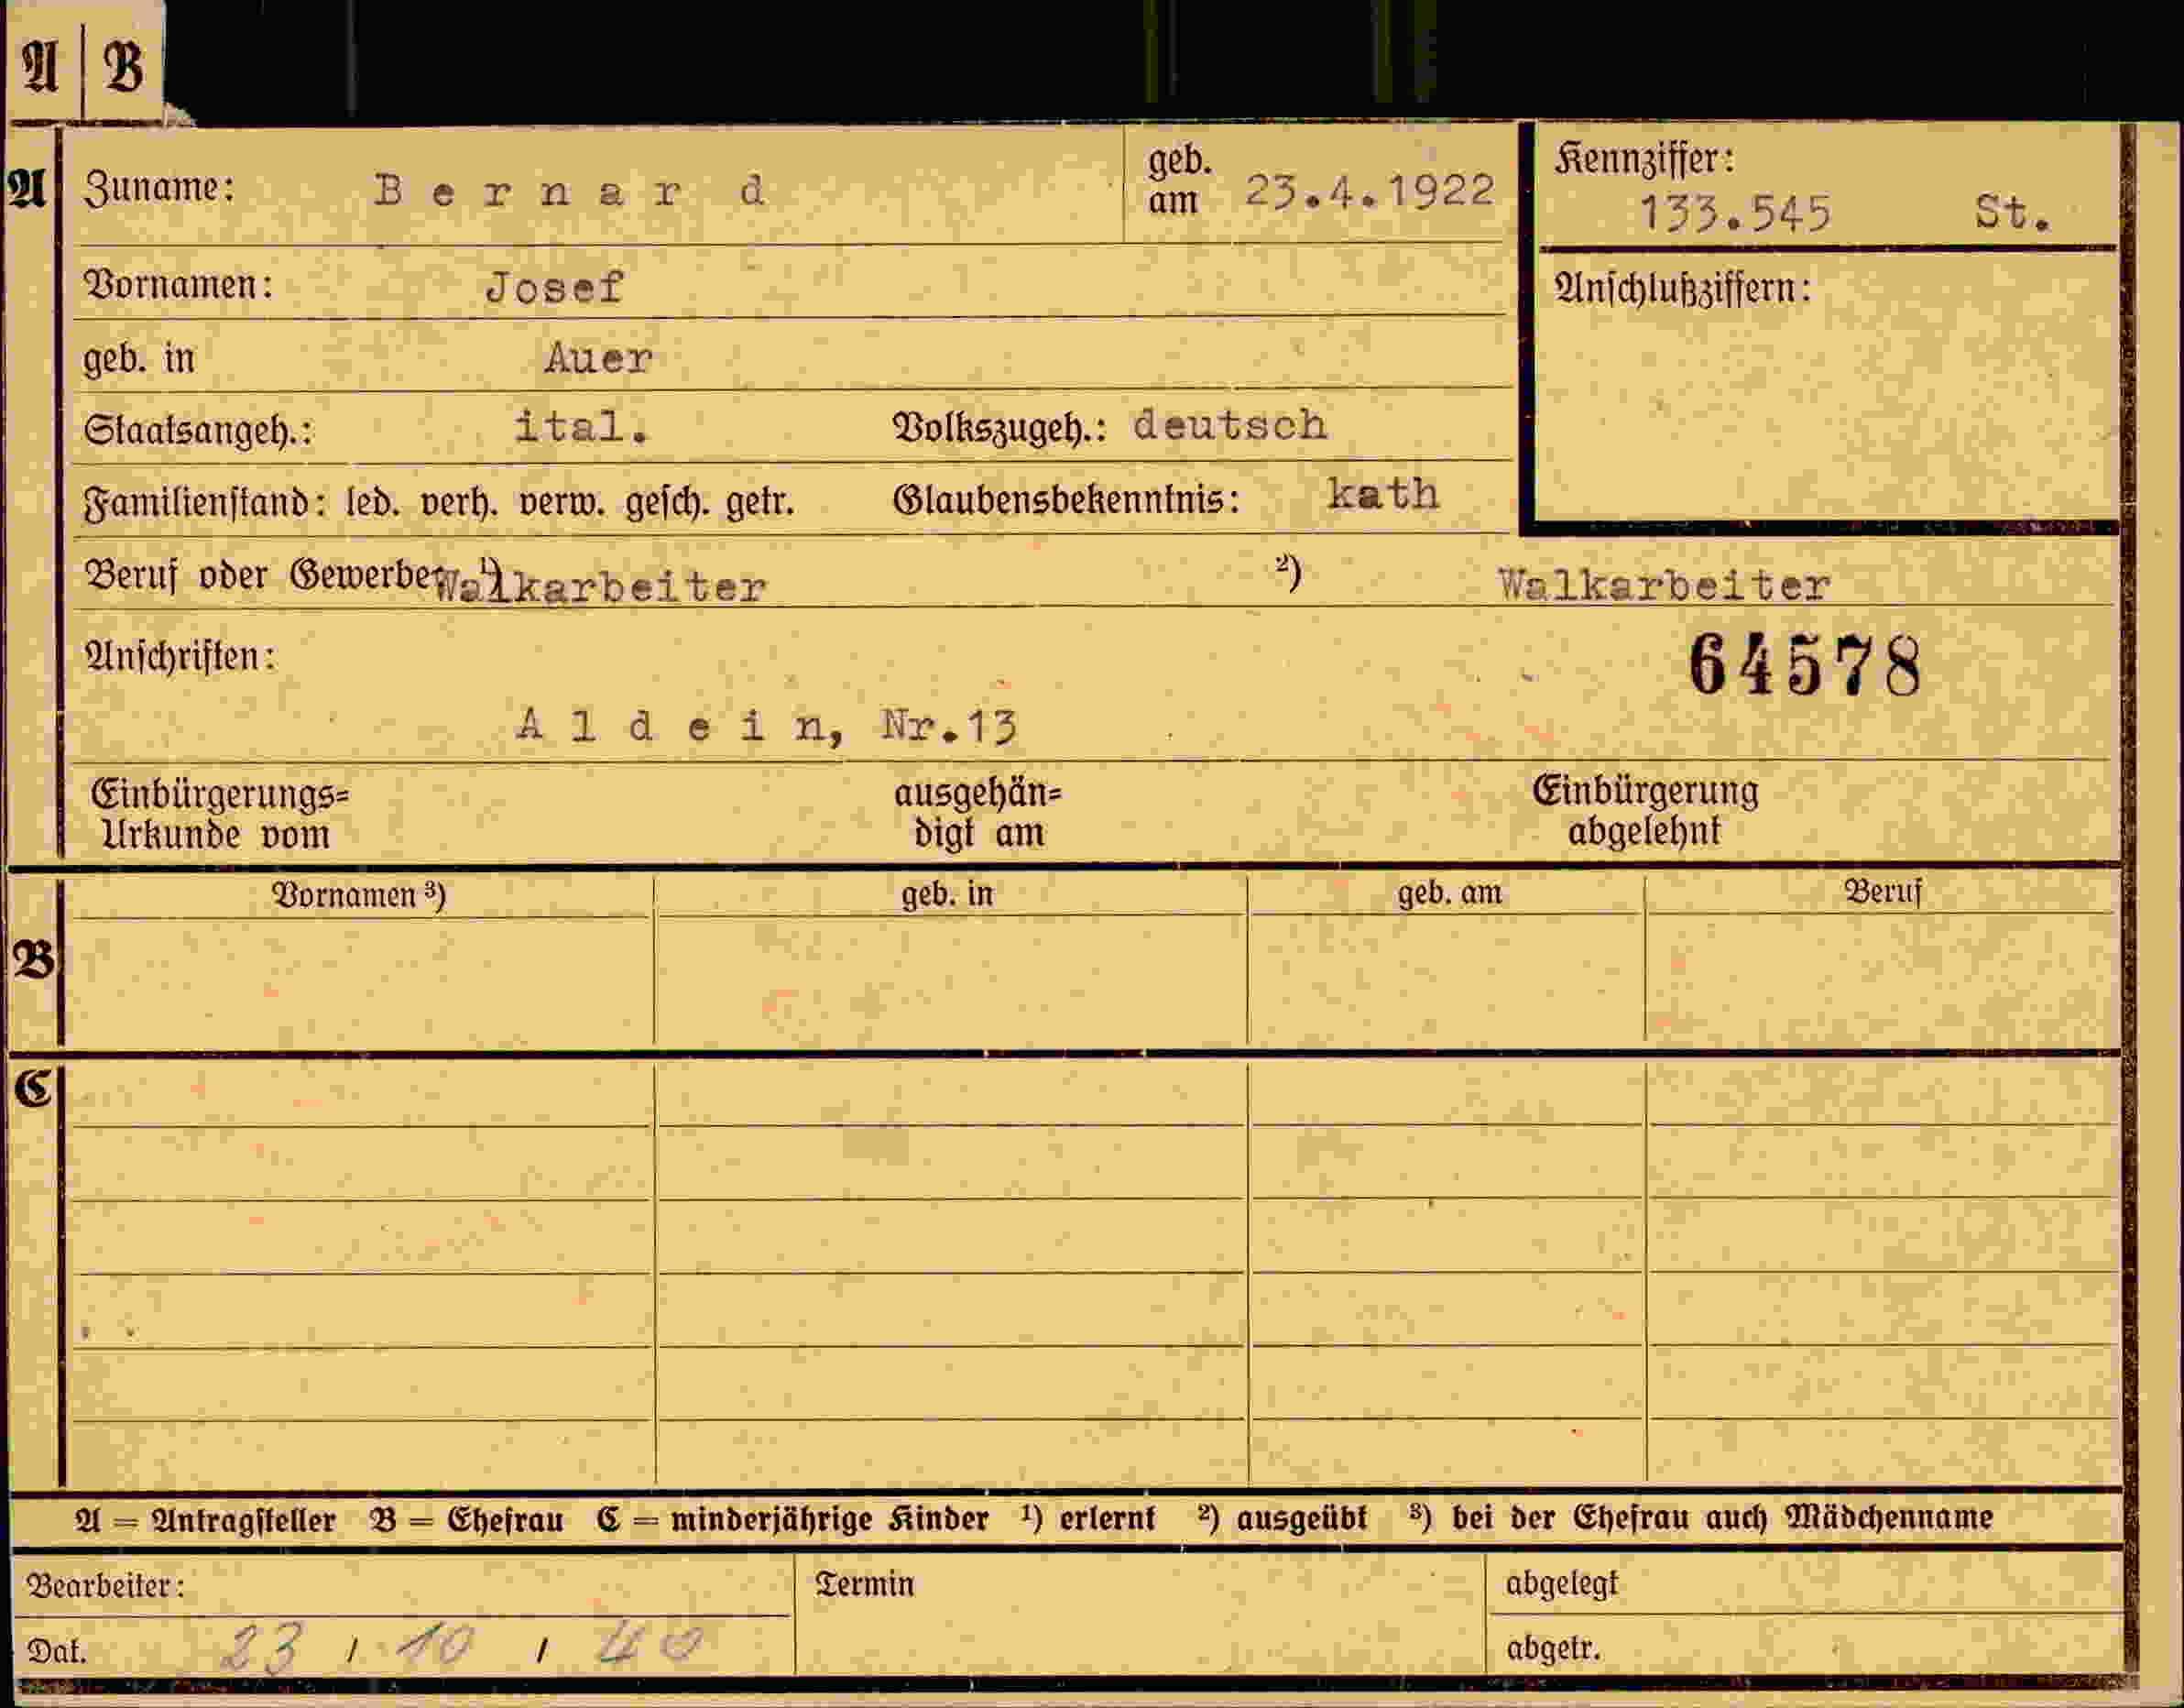 A | B
A Zuname: B e r n a r d geb. am 23.4.1922
Kennziffer: 133.545 St.
Vornamen: Josef
Anschlußziffern:
geb. in Auer
Staatsangeh.: ital. Volkszugeh.: deutsch
Familienstand: led. verh. verw. gesch. getr. Glaubensbekenntnis: kath
Beruf oder Gewerbe: ¹) Walkarbeiter ²) Walkarbeiter
Anschriften: 64578
A l d e i n, Nr.13
Einbürgerungs= ausgehän= Einbürgerung
Urkunde vom digt am abgelehnt
B Vornamen ³) geb. in geb. am Beruf
C
A = Antragsteller B = Ehefrau C = minderjährige Kinder ¹) erlernt ²) ausgeübt ³) bei der Ehefrau auch Mädchenname
Bearbeiter: Termin abgelegt
Dat. 23 / 10 / 40 abgetr.